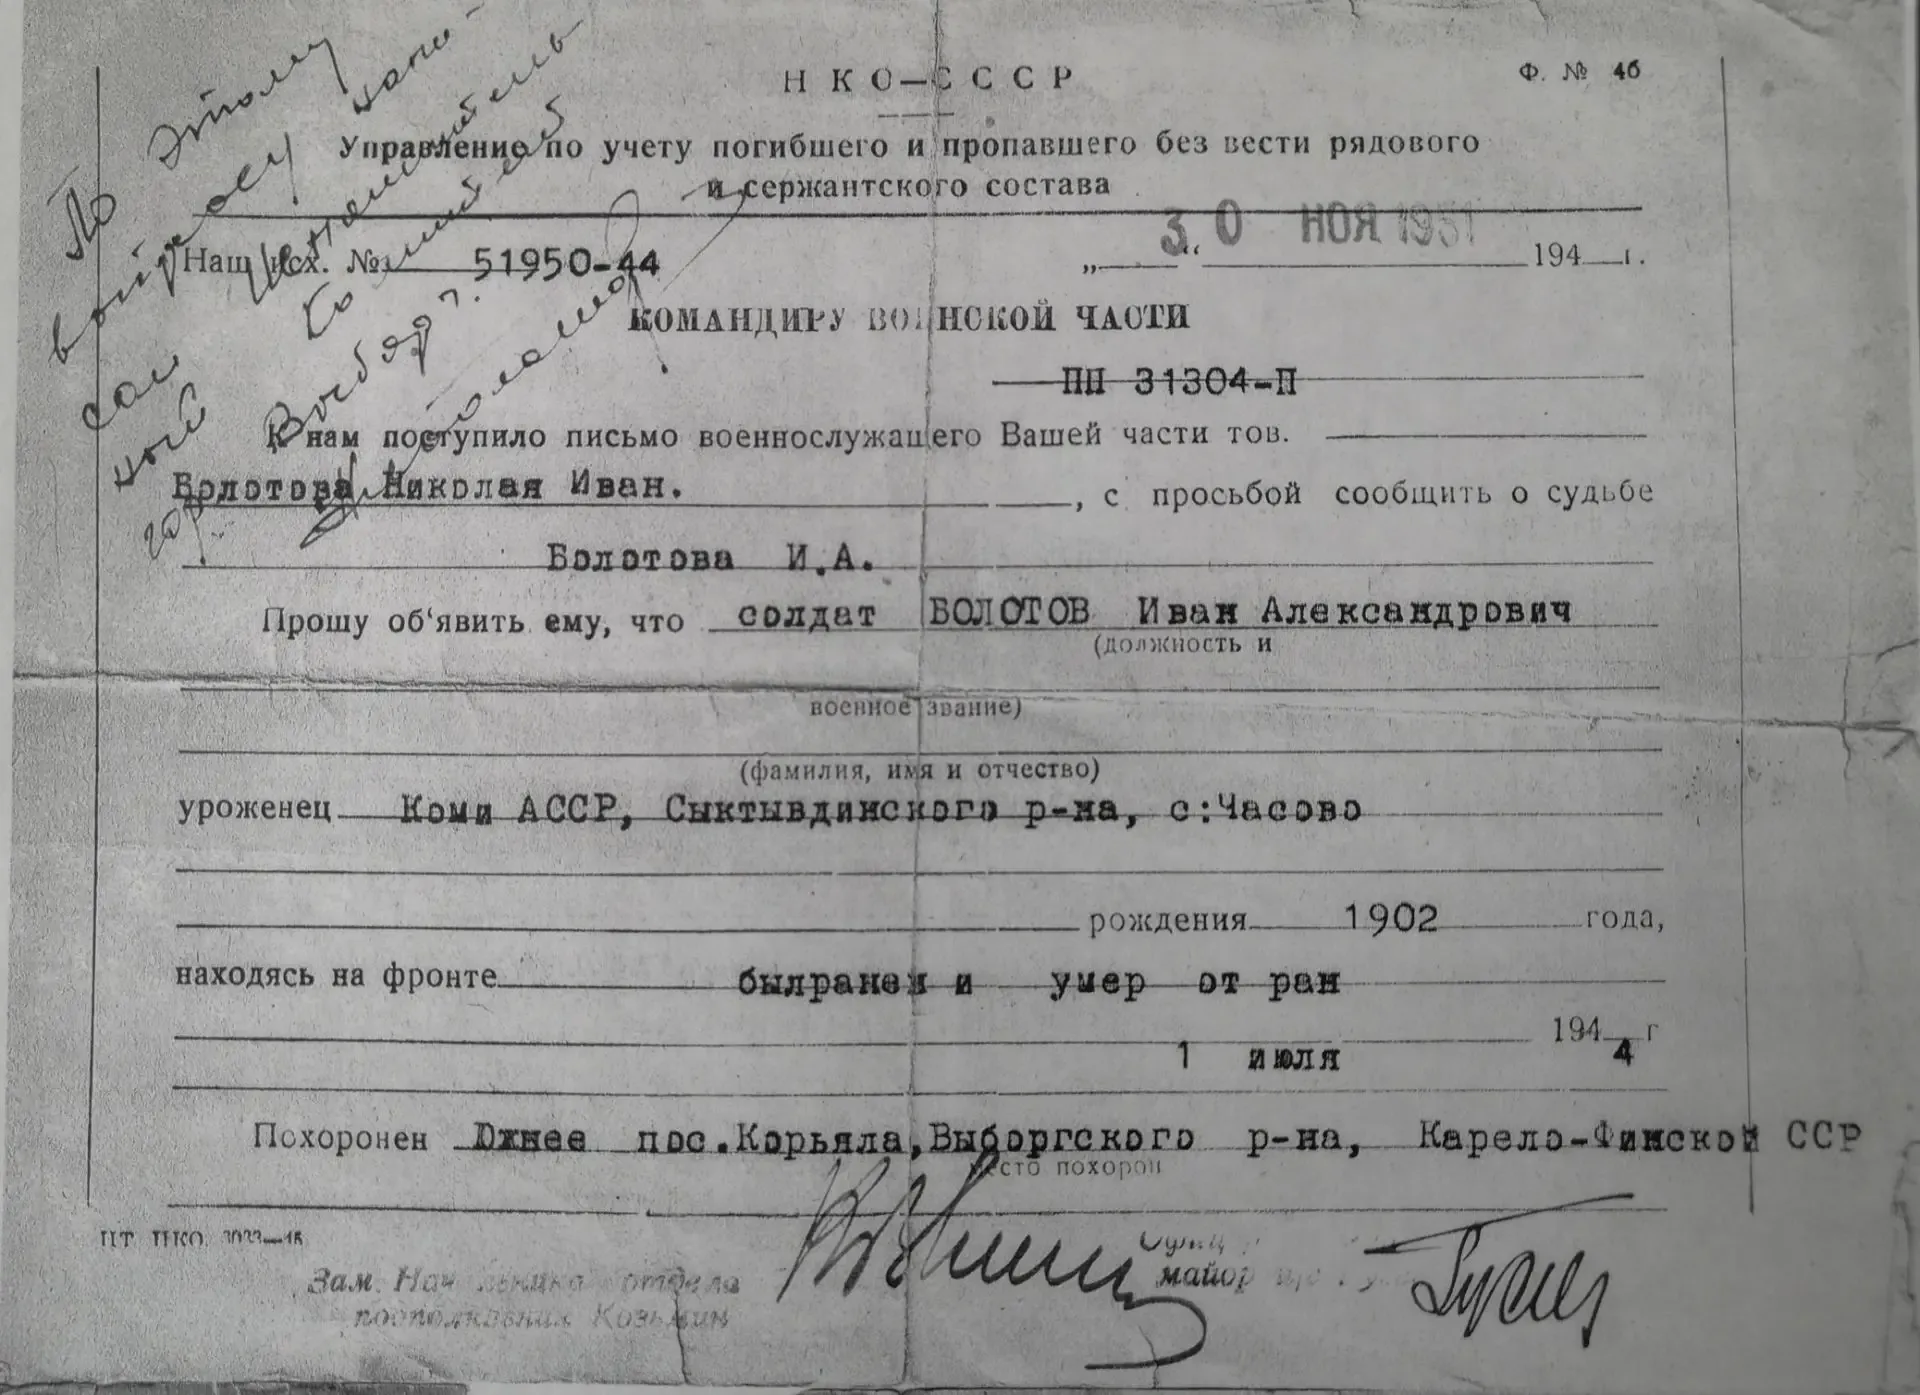 НКО—СССР
Ф. № 46
Управление по учету погибшего и пропавшего без вести рядового
и сержантского состава
30 НОЯ 1951
Наш исх. № 51950-44
„ “ 194 г.
КОМАНДИРУ ВОИНСКОЙ ЧАСТИ
ПП 31304-П
К нам поступило письмо военнослужащего Вашей части тов.
Болотова Николая Иван. , с просьбой сообщить о судьбе
Болотова И.А.
Прошу об‘явить ему, что солдат БОЛОТОВ Иван Александрович
(должность и
военное звание)
(фамилия, имя и отчество)
уроженец Коми АССР, Сыктывдинского р-на, с:Часово
рождения 1902 года,
находясь на фронте былранен и умер от ран
1 июля 1944 г
Похоронен Южнее пос.Корьяла,Выборгского р-на, Карело-Финской ССР
место похорон
Зам. Начальника отдела
подполковник Козьмин
майор
По этому
вопросу
Исполнительный
Комитет
гор.